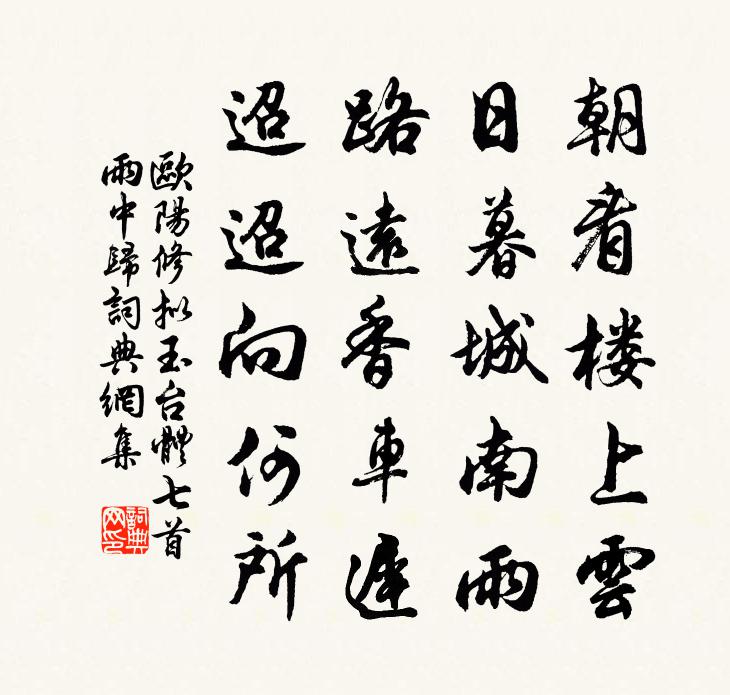 朝看楼上雲
日暮城南雨
路遠香車遲
迢迢向何所
歐陽修拟玉台體七首
雨中歸詞典網集
詞典網印